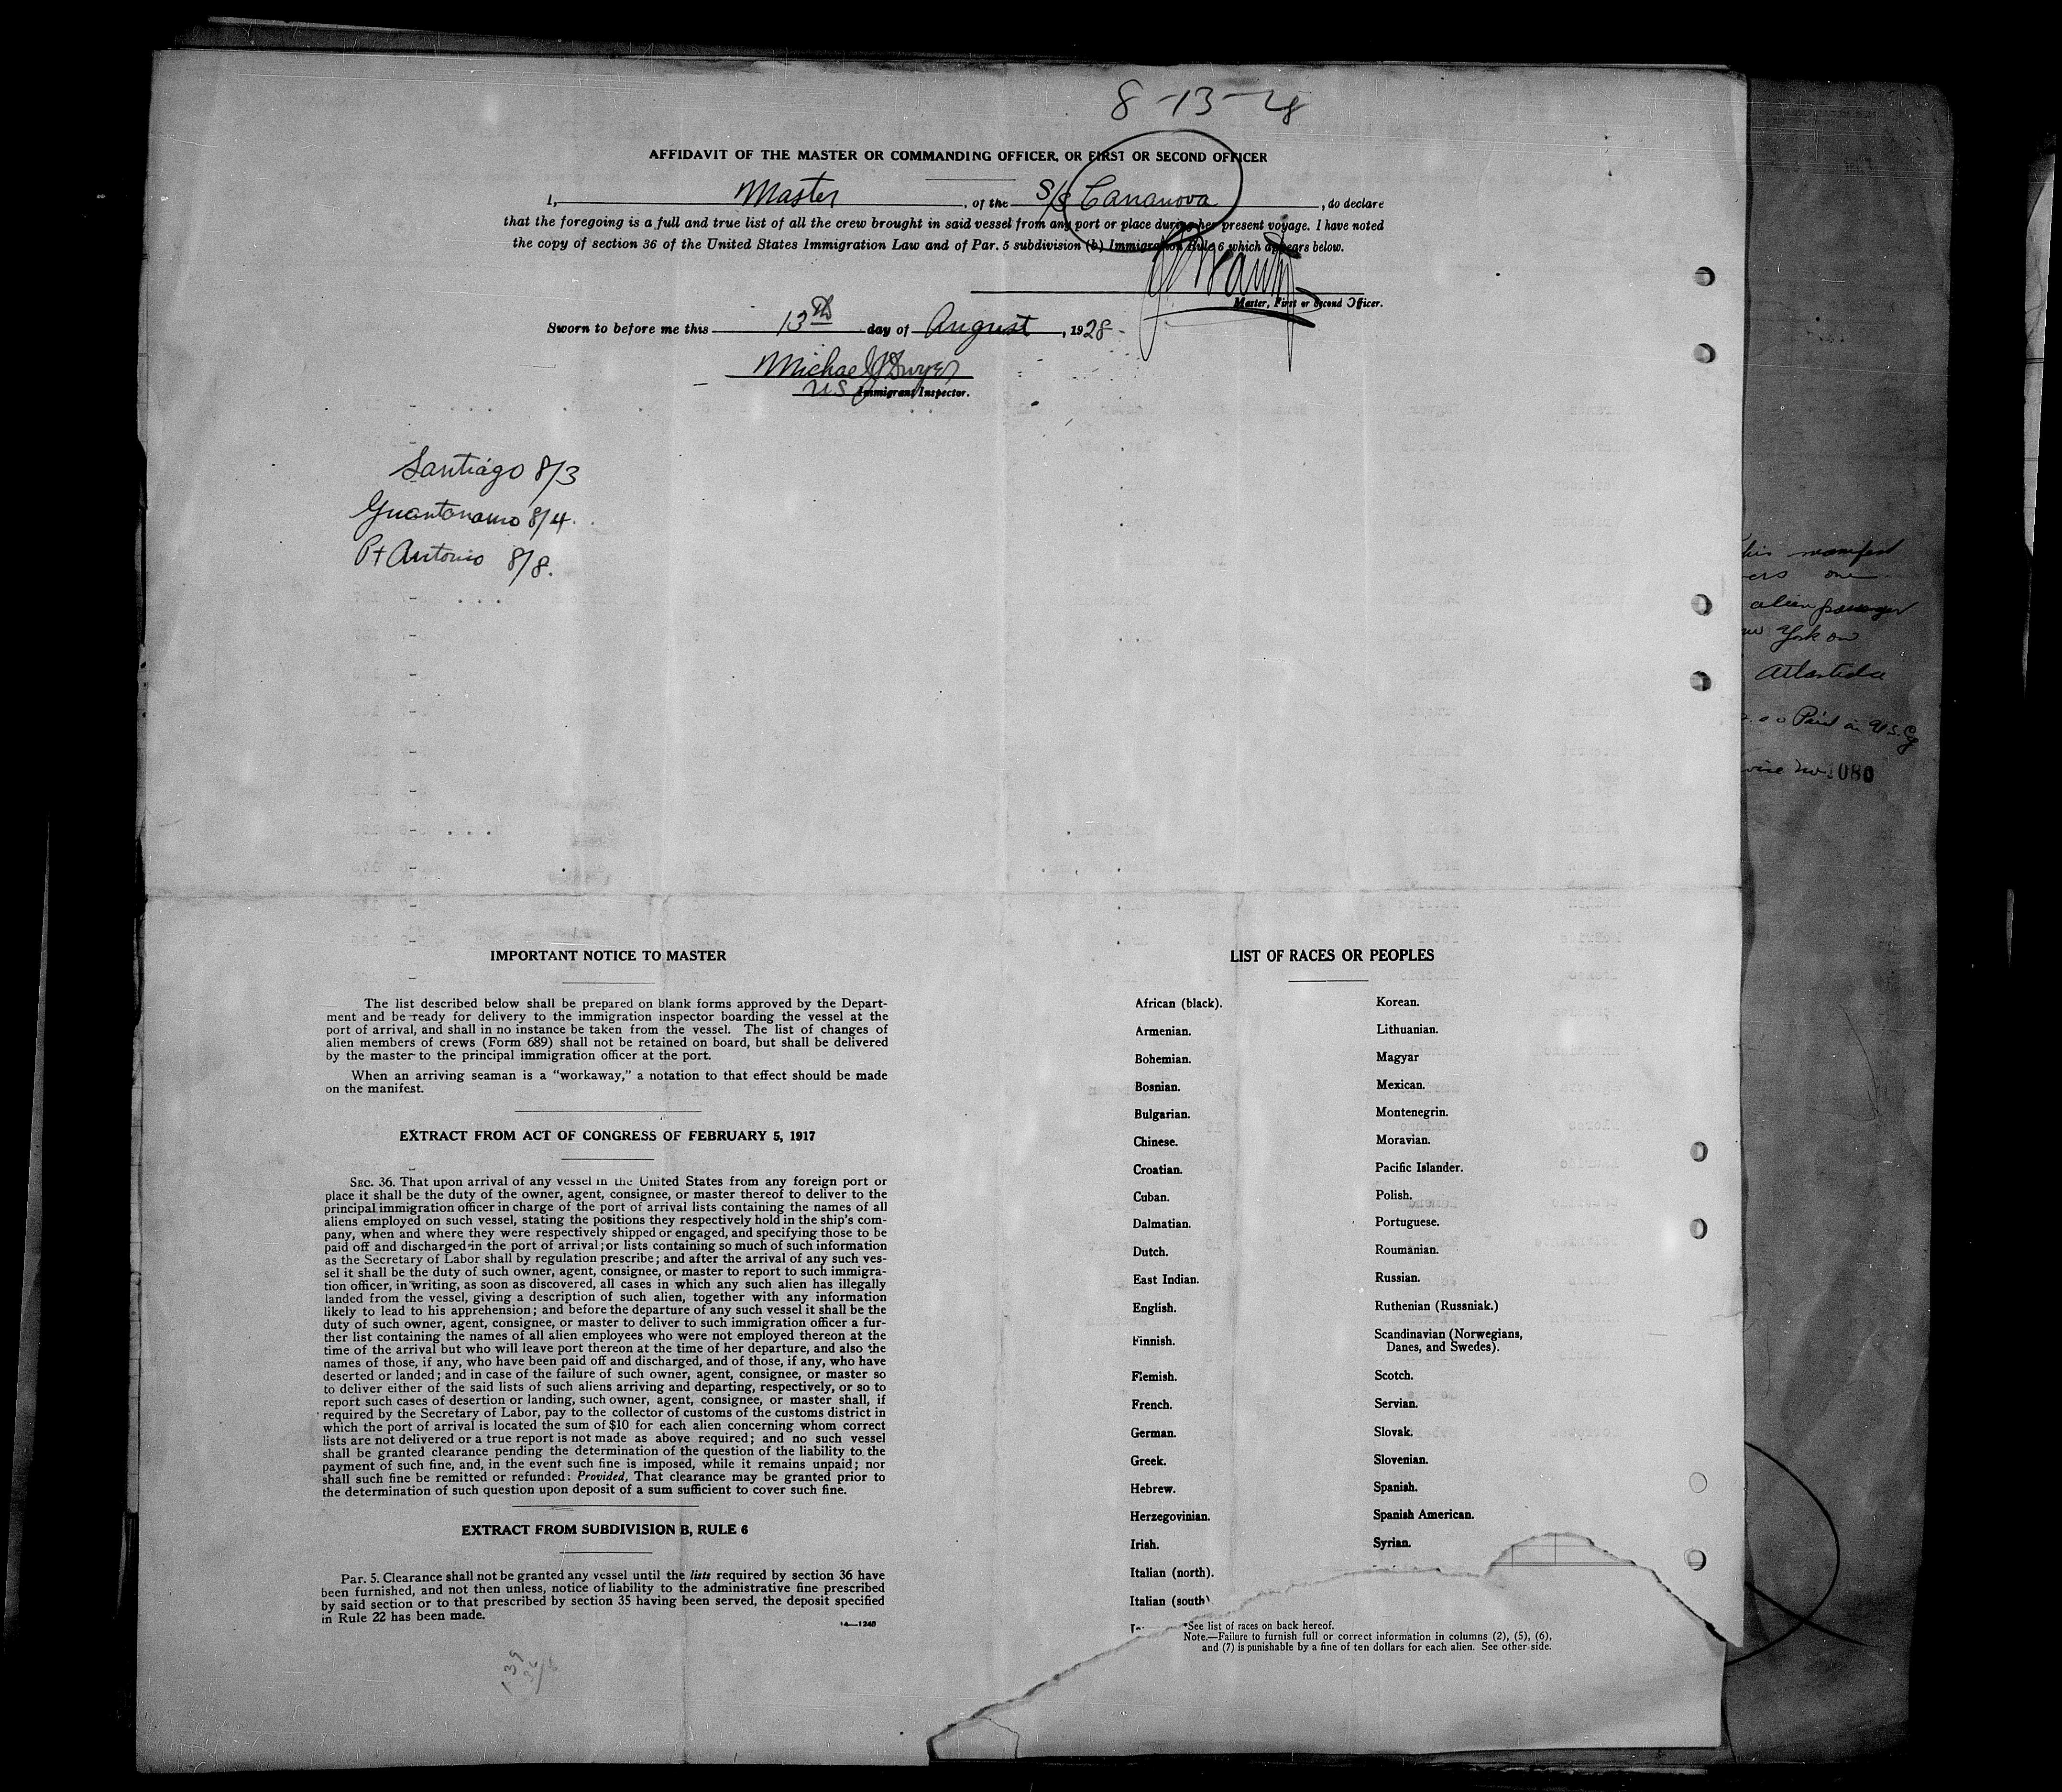 8-13-28
AFFIDAVIT OF THE MASTER OR COMMANDING OFFICER, OR FIRST OR SECOND OFFICER
I, Master, of the S/S Cananova, do declare
that the foregoing is a full and true list of all the crew brought in said vessel from any port or place during her present voyage. I have noted
the copy of section 36 of the United States Immigration Law and of Par. 5 subdivision (b) Immigration Rule 6 which appears below.
Master, First or Second Officer.
Sworn to before me this 13th day of August, 1928-
Michael J Dwyer
US Immigrant Inspector.
Santiago 8/3
Guantanamo 8/4.
Pt Antonio 8/8.
IMPORTANT NOTICE TO MASTER
The list described below shall be prepared on blank forms approved by the Depart-
ment and be ready for delivery to the immigration inspector boarding the vessel at the
port of arrival, and shall in no instance be taken from the vessel. The list of changes of
alien members of crews (Form 689) shall not be retained on board, but shall be delivered
by the master to the principal immigration officer at the port.
When an arriving seaman is a "workaway," a notation to that effect should be made
on the manifest.
EXTRACT FROM ACT OF CONGRESS OF FEBRUARY 5, 1917
SEC. 36. That upon arrival of any vessel in the United States from any foreign port or
place it shall be the duty of the owner, agent, consignee, or master thereof to deliver to the
principal immigration officer in charge of the port of arrival lists containing the names of all
aliens employed on such vessel, stating the positions they respectively hold in the ship's com-
pany, when and where they were respectively shipped or engaged, and specifying those to be
paid off and discharged in the port of arrival; or lists containing so much of such information
as the Secretary of Labor shall by regulation prescribe; and after the arrival of any such ves-
sel it shall be the duty of such owner, agent, consignee, or master to report to such immigra-
tion officer, in writing, as soon as discovered, all cases in which any such alien has illegally
landed from the vessel, giving a description of such alien, together with any information
likely to lead to his apprehension; and before the departure of any such vessel it shall be the
duty of such owner, agent, consignee, or master to deliver to such immigration officer a fur-
ther list containing the names of all alien employees who were not employed thereon at the
time of the arrival but who will leave port thereon at the time of her departure, and also the
names of those, if any, who have been paid off and discharged, and of those, if any, who have
deserted or landed; and in case of the failure of such owner, agent, consignee, or master so
to deliver either of the said lists of such aliens arriving and departing, respectively, or so to
report such cases of desertion or landing, such owner, agent, consignee, or master shall, if
required by the Secretary of Labor, pay to the collector of customs of the customs district in
which the port of arrival is located the sum of $10 for each alien concerning whom correct
lists are not delivered or a true report is not made as above required; and no such vessel
shall be granted clearance pending the determination of the question of the liability to the
payment of such fine, and, in the event such fine is imposed, while it remains unpaid; nor
shall such fine be remitted or refunded: Provided, That clearance may be granted prior to
the determination of such question upon deposit of a sum sufficient to cover such fine.
EXTRACT FROM SUBDIVISION B, RULE 6
Par. 5. Clearance shall not be granted any vessel until the lists required by section 36 have
been furnished, and not then unless, notice of liability to the administrative fine prescribed
by said section or to that prescribed by section 35 having been served, the deposit specified
in Rule 22 has been made.
14—1240
LIST OF RACES OR PEOPLES
African (black).
Armenian.
Bohemian.
Bosnian.
Bulgarian.
Chinese.
Croatian.
Cuban.
Dalmatian.
Dutch.
East Indian.
English.
Finnish.
Flemish.
French.
German.
Greek.
Hebrew.
Herzegovinian.
Irish.
Italian (north).
Italian (south)
Korean.
Lithuanian.
Magyar
Mexican.
Montenegrin.
Moravian.
Pacific Islander.
Polish.
Portuguese.
Roumanian.
Russian.
Ruthenian (Russniak.)
Scandinavian (Norwegians,
Danes, and Swedes).
Scotch.
Servian.
Slovak.
Slovenian.
Spanish.
Spanish American.
Syrian.
*See list of races on back hereof.
Note.—Failure to furnish full or correct information in columns (2), (5), (6),
and (7) is punishable by a fine of ten dollars for each alien. See other side.
manifest
one
alien passenger
York on
Atlantida
Paid in U.S.
080